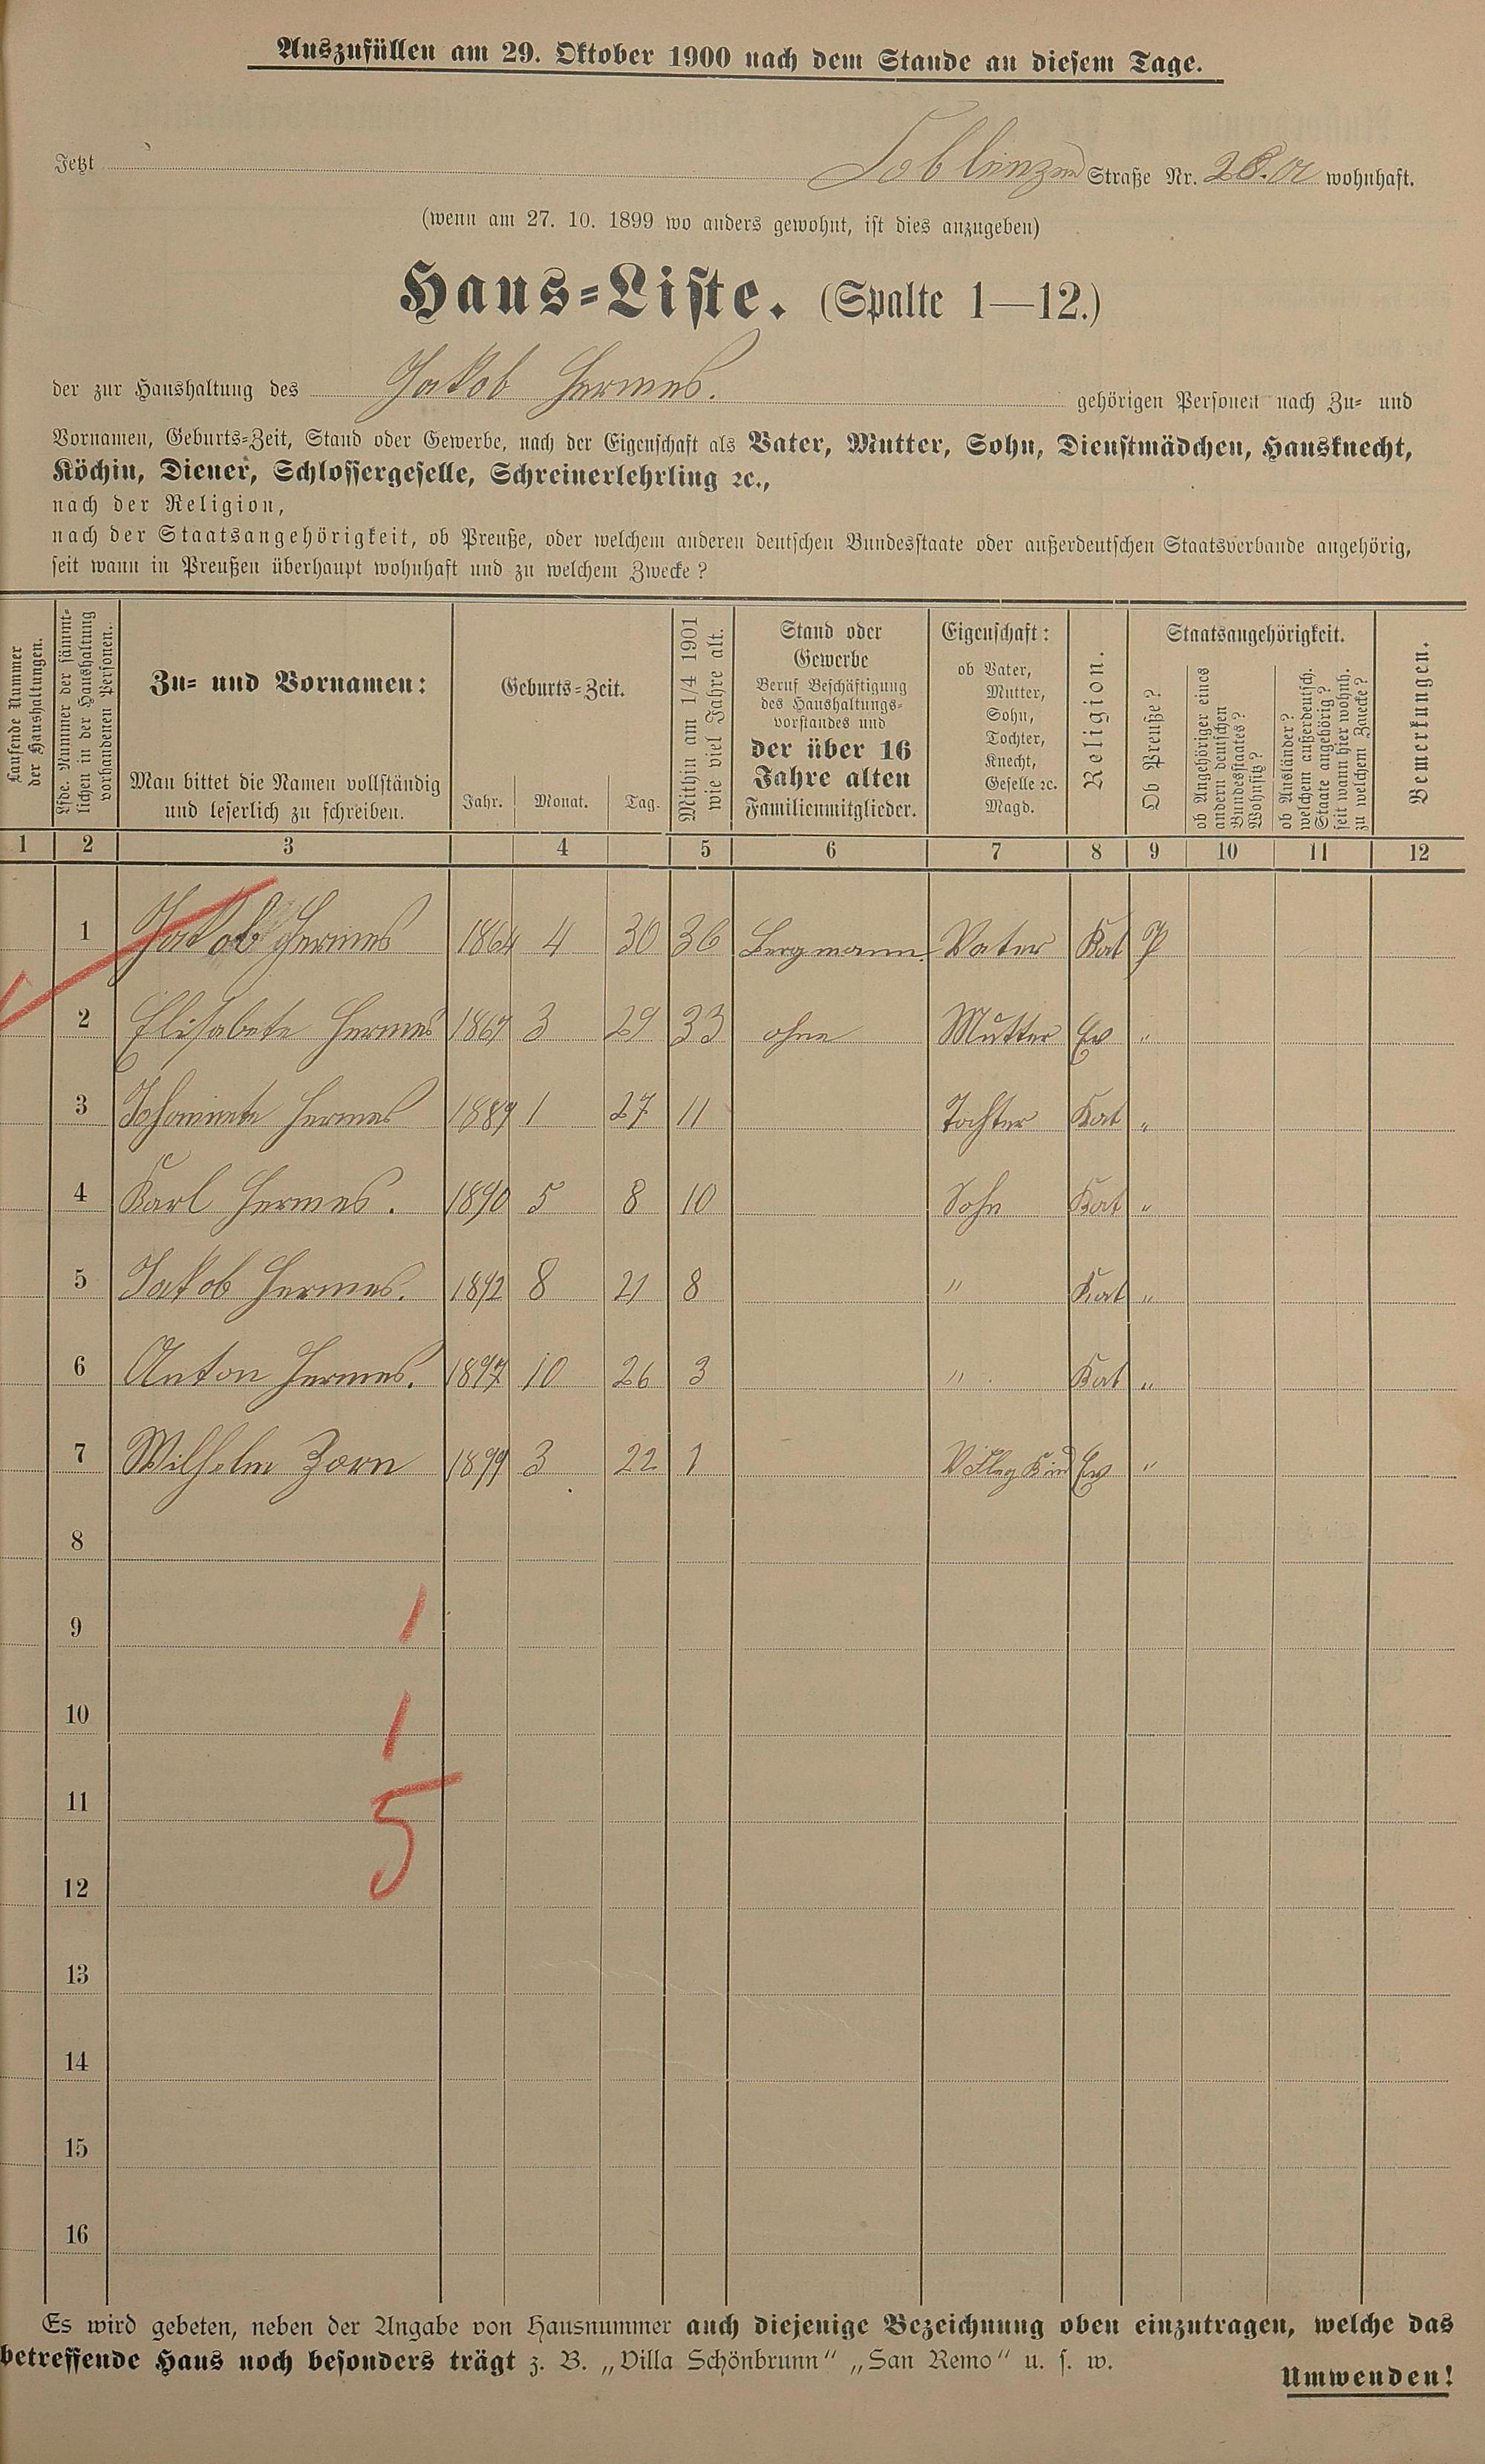 Auszufüllen am 29. Oktober 1900 nach dem Stande an diesem Tage.
Jetzt Coblenzer Straße Nr. 28. wohnhaft.
(wenn am 27. 10. 1899 wo anders gewohnt, ist dies anzugeben)
Haus-Liste. (Spalte 1—12.)
der zur Haushaltung des Jakob Hermes. gehörigen Personen nach Zu- und
Vornamen, Geburts-Zeit, Stand oder Gewerbe, nach der Eigenschaft als Vater, Mutter, Sohn, Dienstmädchen, Hausknecht,
Köchin, Diener, Schlossergeselle, Schreinerlehrling ꝛc.,
nach der Religion,
nach der Staatsangehörigkeit, ob Preuße, oder welchem anderen deutschen Bundesstaate oder außerdeutschen Staatsverbande angehörig,
seit wann in Preußen überhaupt wohnhaft und zu welchem Zwecke?
Laufende Nummer
der Haushaltungen.
Lfde. Nummer der sämmt-
lichen in der Haushaltung
vorhandenen Personen.
Zu- und Vornamen:
Man bittet die Namen vollständig
und leserlich zu schreiben.
Geburts-Zeit.
Jahr. Monat. Tag.
Mithin am 1/4 1901
wie viel Jahre alt.
Stand oder
Gewerbe
Beruf Beschäftigung
des Haushaltungs-
vorstandes und
der über 16
Jahre alten
Familienmitglieder.
Eigenschaft:
ob Vater,
Mutter,
Sohn,
Tochter,
Knecht,
Geselle ꝛc.
Magd.
Religion.
Staatsangehörigkeit.
Ob Preuße?
ob Angehöriger eines
andern deutschen
Bundesstaates?
Wohnsitz?
ob Ausländer?
welchem außerdeutsch.
Staate angehörig?
seit wann hier wohnh.
zu welchem Zwecke?
Bemerkungen.
1 2 3 4 5 6 7 8 9 10 11 12
1 Jakob Hermes 1864 4 30 36 Bergmann. Vater Kat P
2 Elisabete Hermes 1867 3 29 33 ohne Mutter Ev "
3 Hermes 1889 1 27 11 Tochter Kat "
4 Karl Hermes. 1890 5 8 10 Sohn Kat "
5 Jakob Hermes. 1892 8 21 8 " Kat "
6 Anton Hermes. 1897 10 26 3 " Kat "
7 Wilhelm Zorn 1899 3 22 1 Ev "
8
9 1
10 1
11 5
12
13
14
15
16
Es wird gebeten, neben der Angabe von Hausnummer auch diejenige Bezeichnung oben einzutragen, welche das
betreffende Haus noch besonders trägt z. B. „Villa Schönbrunn“ „San Remo“ u. s. w.
Umwenden!